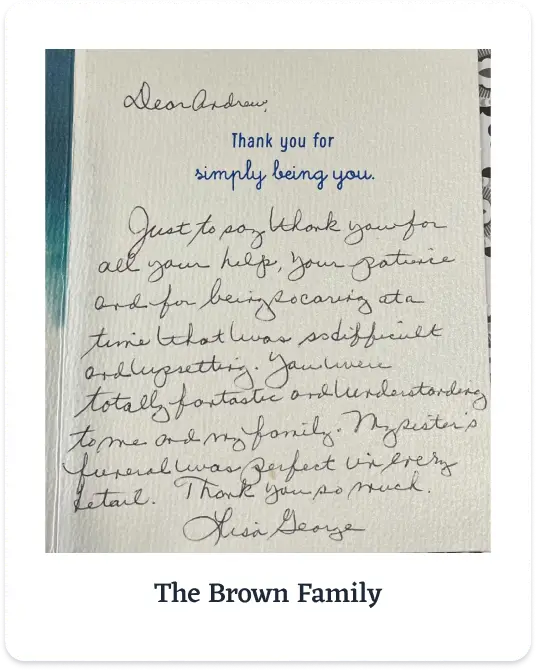 Dear Andrew,
Thank you for
simply being you.
Just to say thank you for
all your help, your patience
and for being so caring at a
time that was so difficult
and upsetting. You were
totally fantastic and understanding
to me and my family. My sister's
funeral was perfect in every
detail. Thank you so much.
Lisa George
The Brown Family